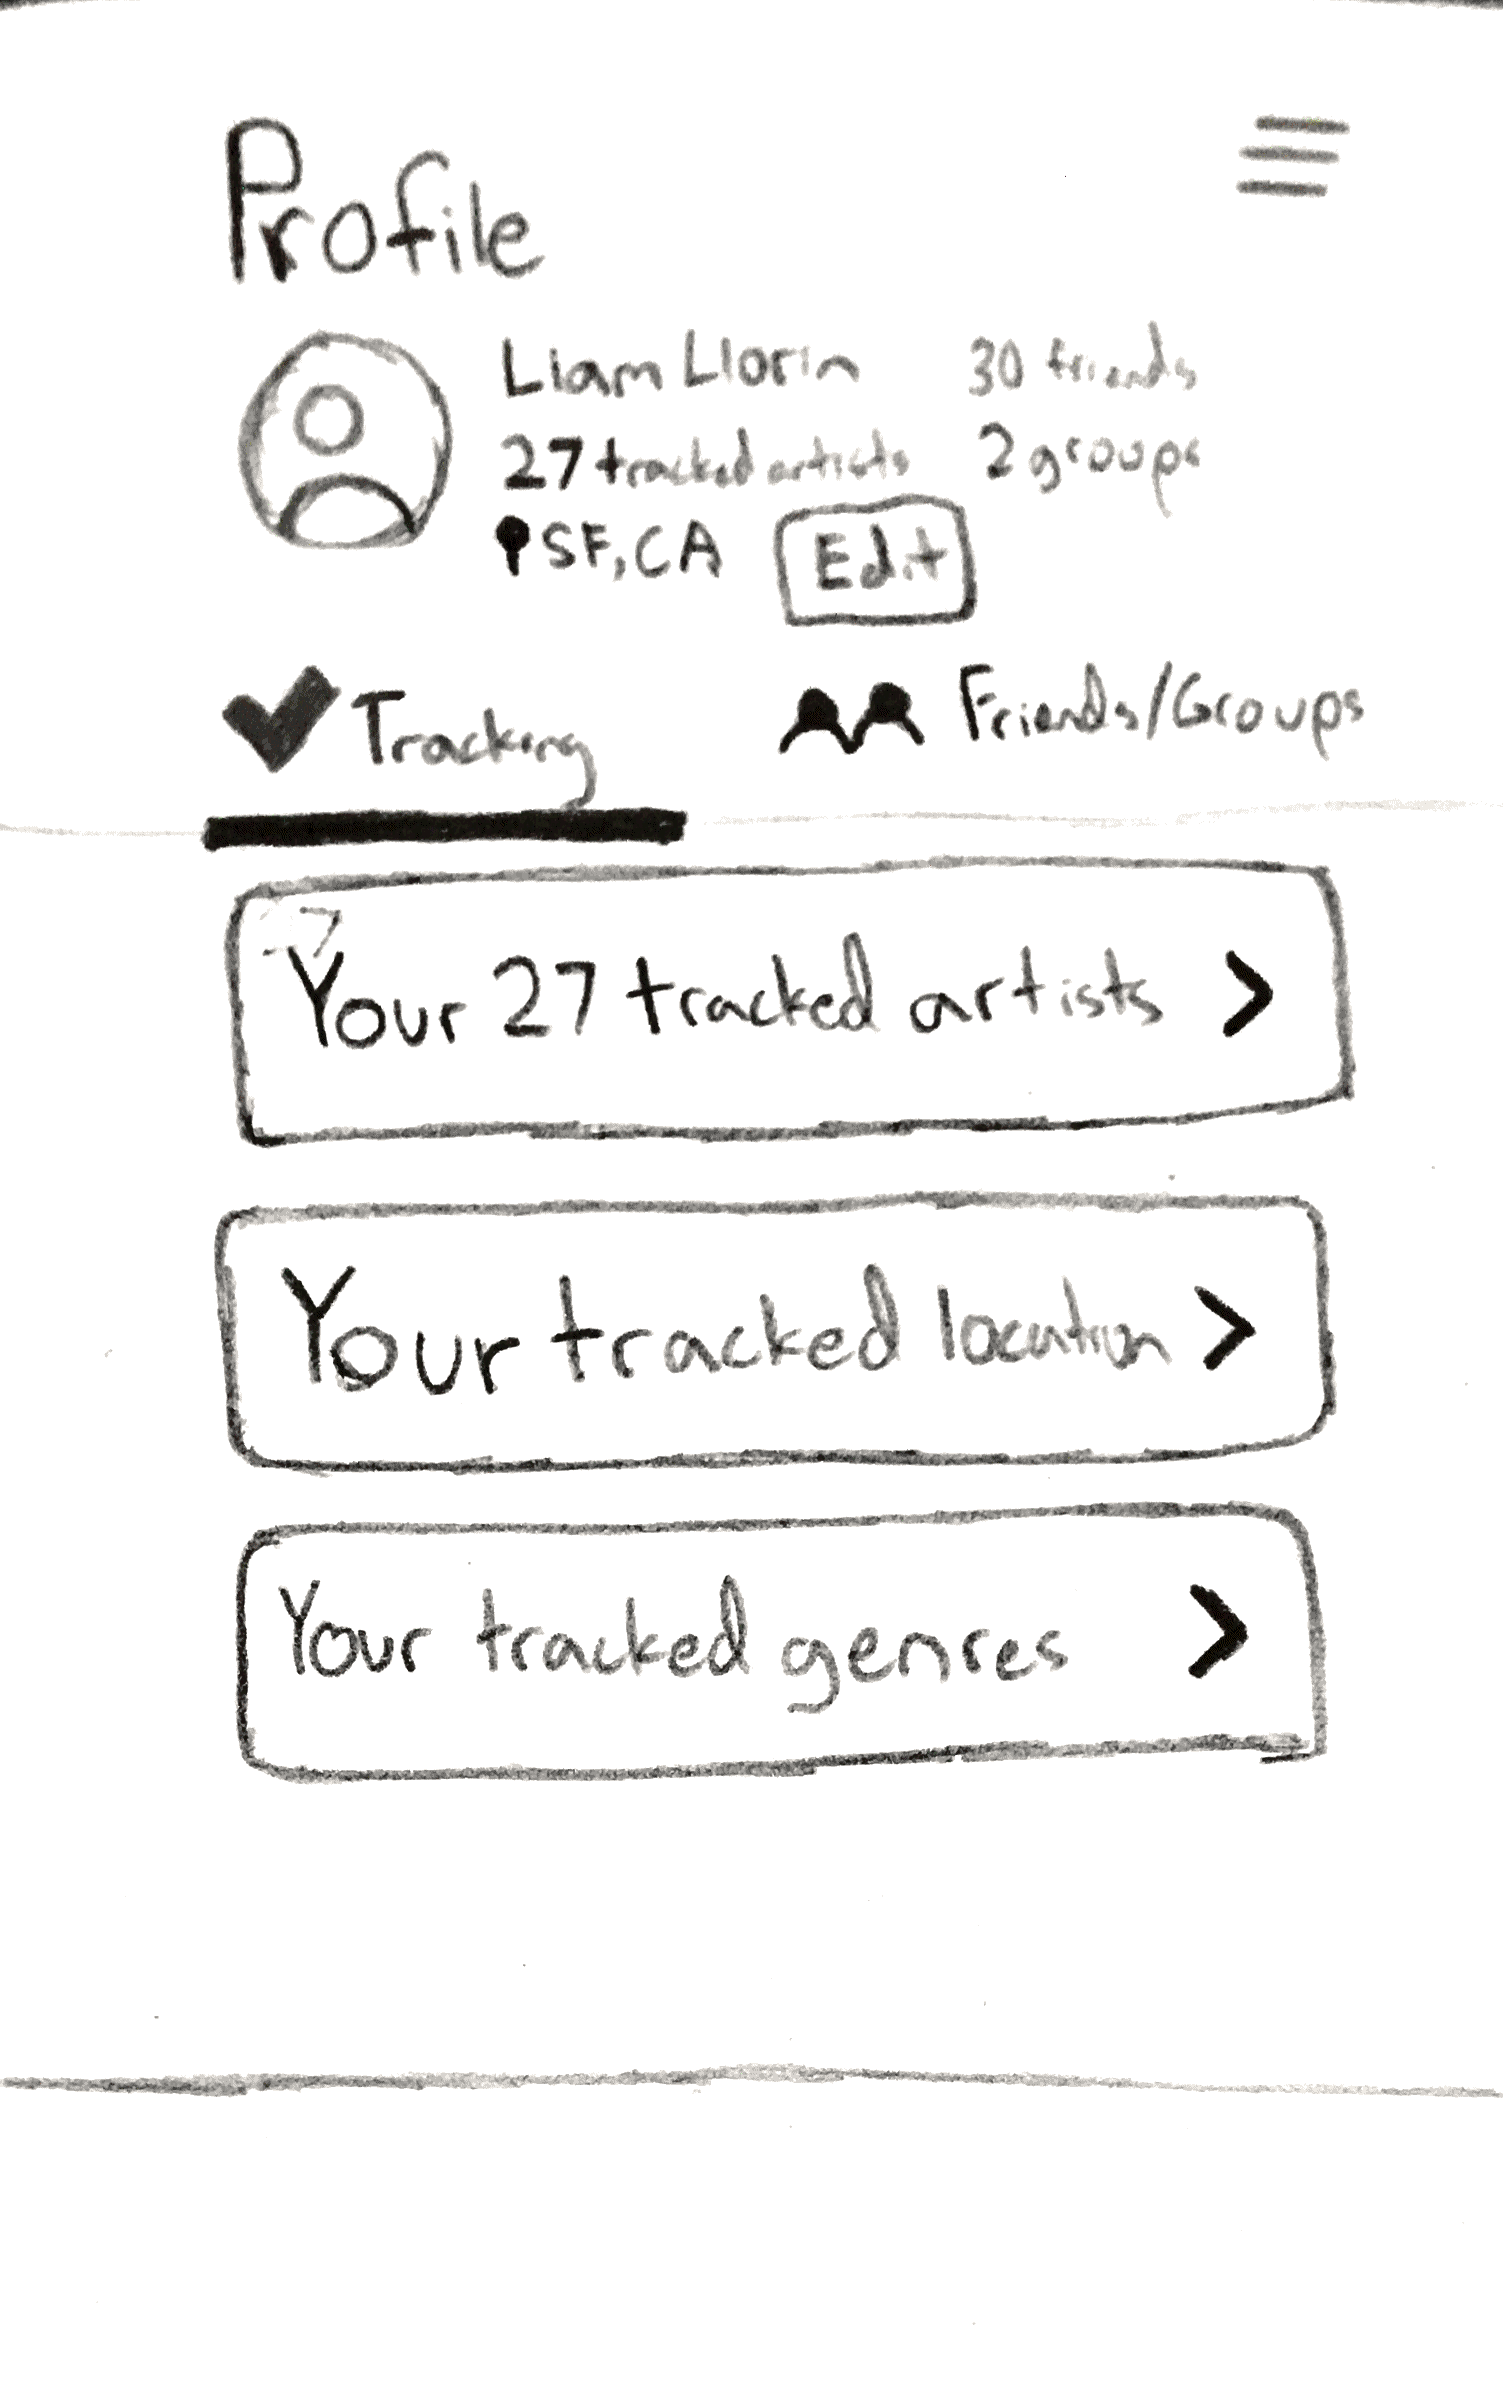 Profile
Liam Llorin 30 friends
27 tracked artists 2 groups
SF, CA Edit
Tracking Friends/Groups
Your 27 tracked artists >
Your tracked location >
Your tracked genres >